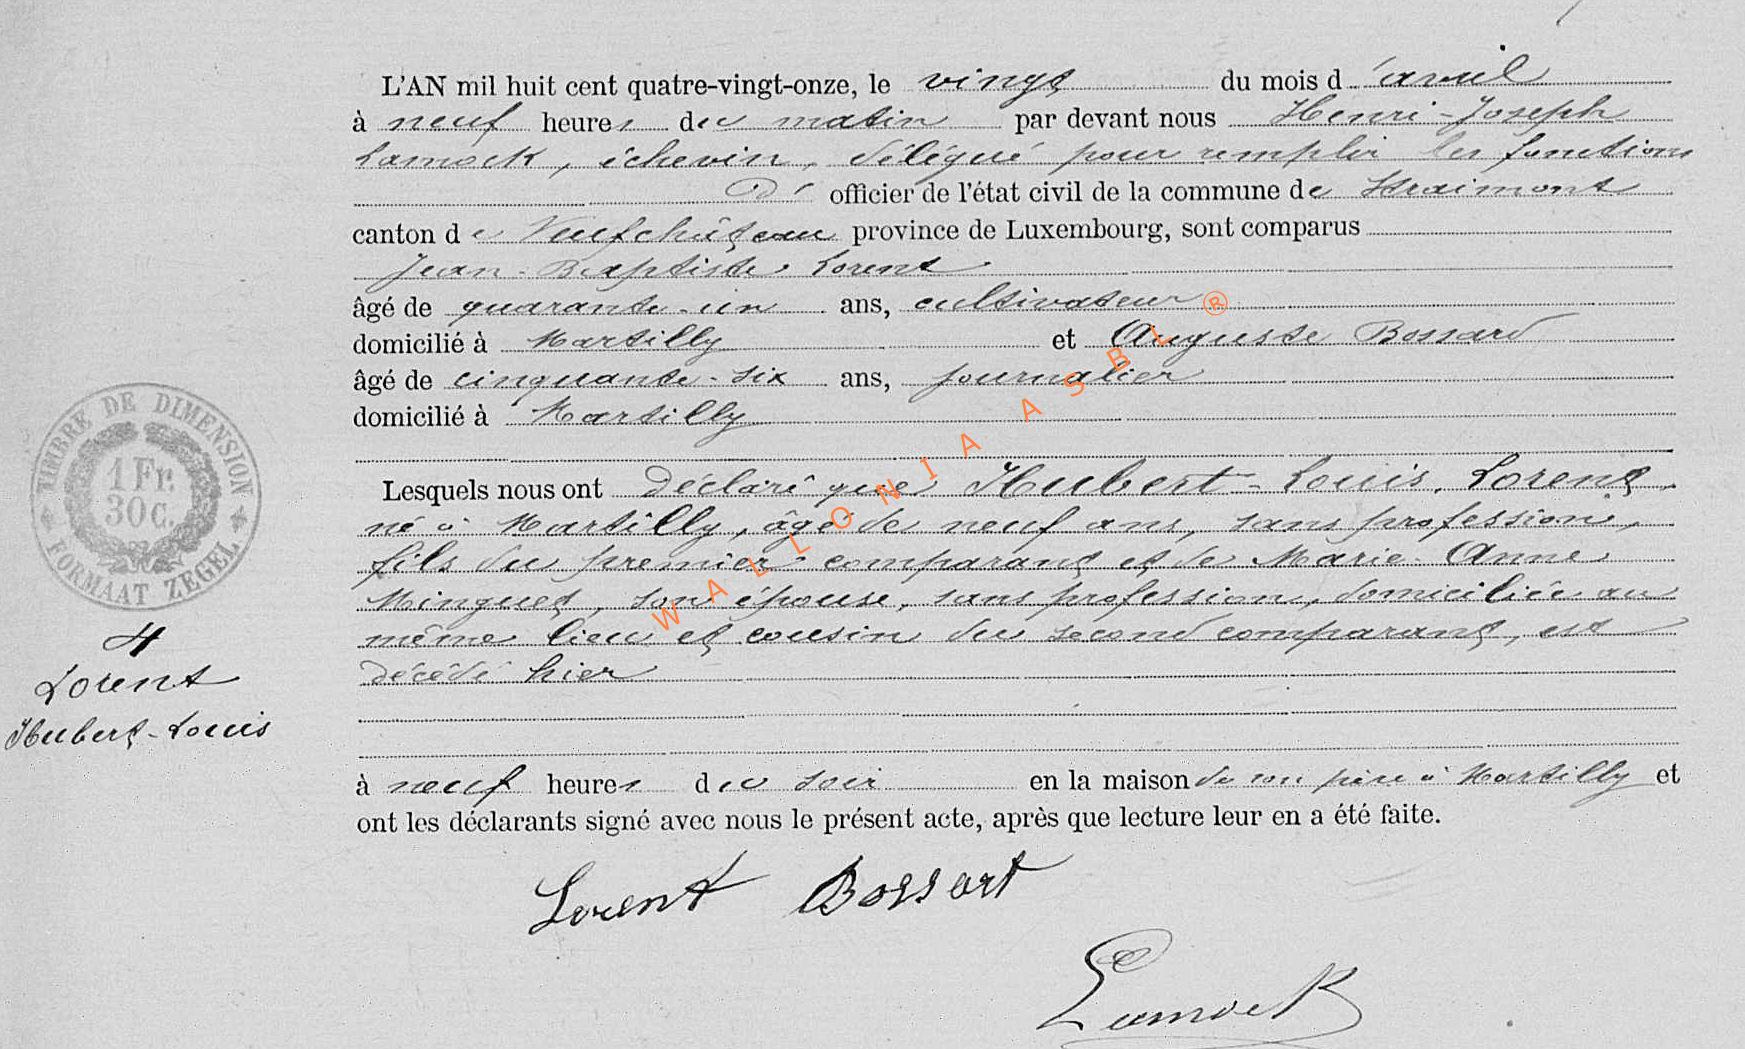 L'AN mil huit cent quatre-vingt-onze, le vingt du mois d'avril
à neuf heures du matin par devant nous Henri-Joseph
Lamock, échevin, délégué pour remplir les fonctions
d' officier de l'état civil de la commune de Straimont
canton de Neufchâteau province de Luxembourg, sont comparus
Jean-Baptiste Lorent
âgé de quarante-un ans, cultivateur
domicilié à Martilly et Auguste Bossard
âgé de cinquante-six ans, journalier
domicilié à Martilly
Lesquels nous ont déclaré que Hubert-Louis Lorent,
né à Martilly, âgé de neuf ans, sans profession,
fils du premier comparant et de Marie-Anne
Minguet, son épouse, sans profession, domiciliée au
même lieu et cousin du second comparant, est
décédé hier
à neuf heures du soir en la maison de son père à Martilly et
ont les déclarants signé avec nous le présent acte, après que lecture leur en a été faite.
Lorent Bossart
Lamock
TIMBRE DE DIMENSION
1 Fr.
30 C.
FORMAAT ZEGEL
4
Lorent
Hubert-Louis
WALLONIA ASBL ®